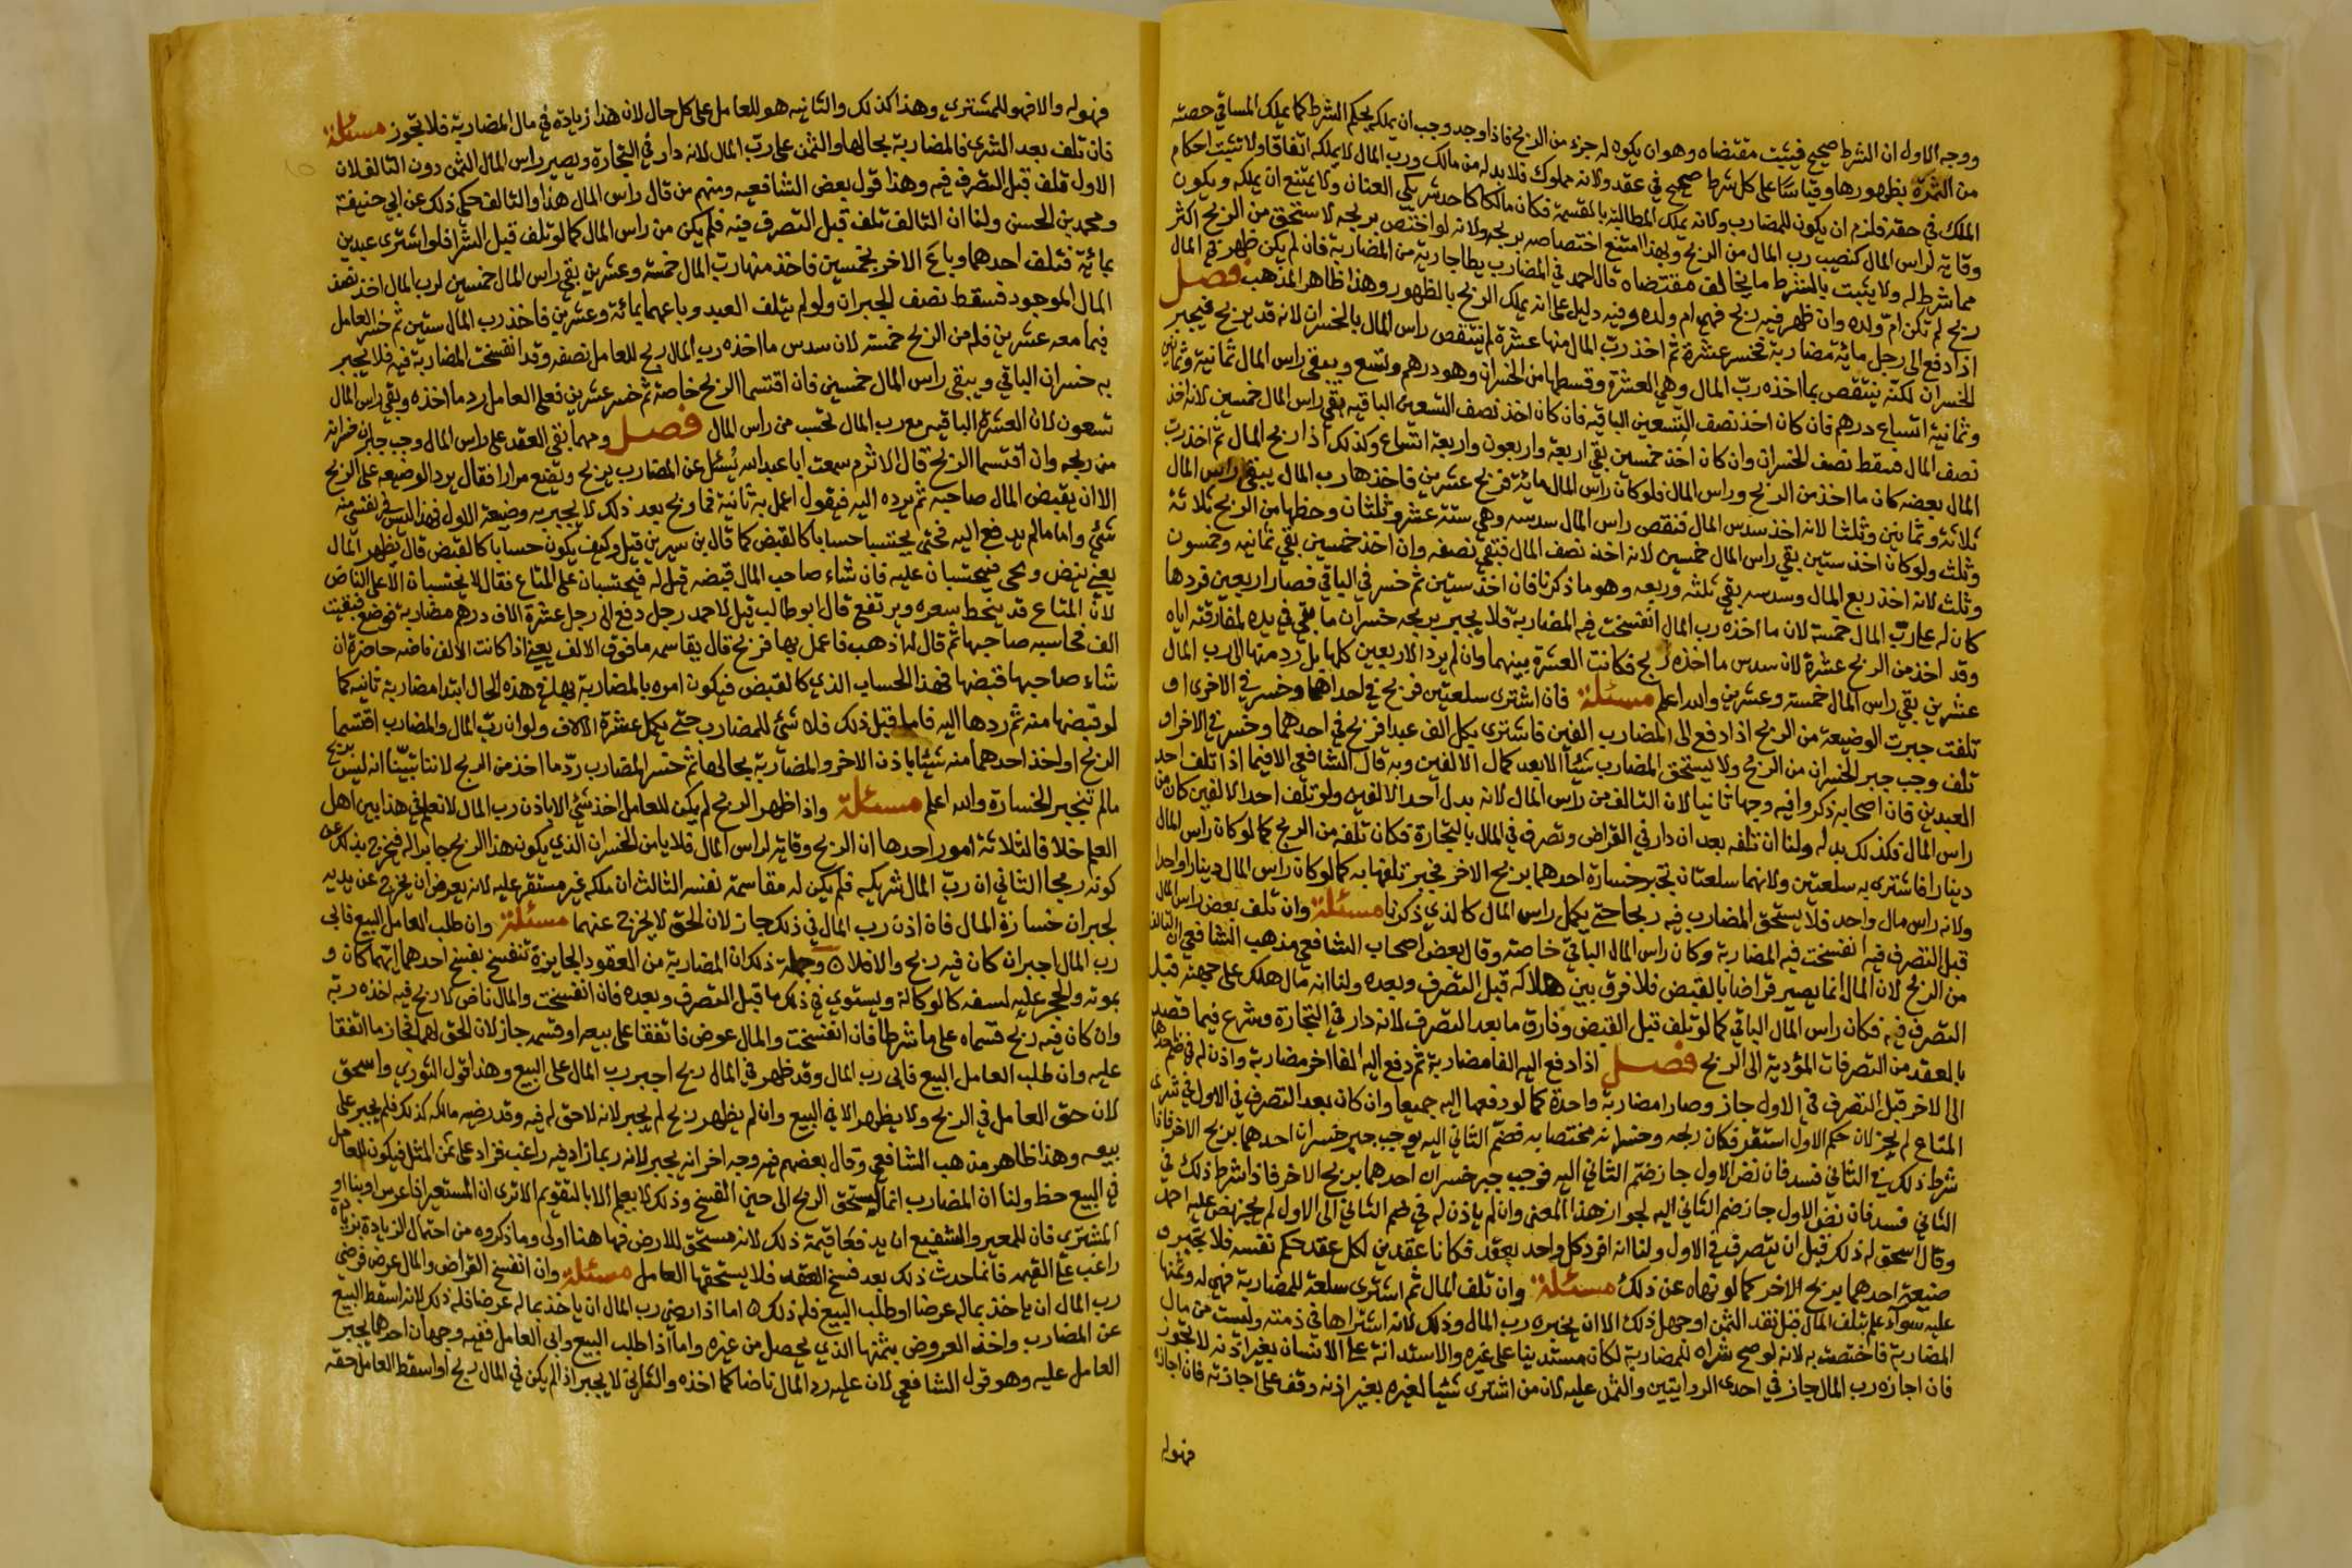 ووجه الاول ان الشرط صحيح فيثبت مقتضاه وهو ان يكون له جزء من الربح فاذا وجد وجب ان يملكه بحكم الشرط كما يملك المساقي حصته
من الثمرة بظهورها وقياسًا على كل شرط صحيح في عقد ولانه مملوك فلا بد له من مالك ورب المال لا يملكه اتفاقا ولا تثبت احكام
الملك في حقه فلزم ان يكون للمضارب ولانه يملك المطالبة بالقسمة فكان مالكا كاحد شريكي العنان ولا يمتنع ان يملكه ويكون
وقاية لراس المال كنصيب رب المال من الربح وبهذا امتنع اختصاصه بربحه ولانه لو اختص بربحه لاستحق من الربح اكثر
مما شرط له ولا يثبت بالشرط ما يخالف مقتضاه قال احمد في المضارب يطا جارية من المضاربة فان لم يكن ظهر في المال
ربح لم تكن ام ولده وان ظهر فيه ربح فهي ام ولده وفيه دليل على انه يملك الربح بالظهور وهذا ظاهر المذهب فصل
اذا دفع الى رجل مائة مضاربة فخسر عشرة ثم اخذ رب المال منها عشرة لم ينتقص راس المال بالخسران لانه قد يربح فيجبر
الخسران لكنه ينتقص بما اخذه رب المال وهي العشرة وقسطها من الخسران وهو درهم وتسع ويبقى راس المال ثمانية وثمانين
وثمانية اتساع درهم فان كان اخذ نصف التسعين الباقية فان كان اخذ نصف التسعين الباقيه بقي راس المال خمسين لانه اخذ
نصف المال فسقط نصف الخسران وان كان اخذ خمسين بقي اربعة واربعون واربعة اتساع وكذلك اذا ربح المال ثم اخذ رب
المال بعضه كان ما اخذ من الربح وراس المال فلو كان راس المال مائة فربح عشرين فاخذها رب المال يبقى راس المال
ثلاثة وثمانين وثلثا لانه اخذ سدس المال فنقص راس المال سدسه وهي ستة عشر وثلثان وحظها من الربح ثلاثة
وثلث ولو كان اخذ ستين بقي راس المال خمسين لانه اخذ نصف المال فبقي نصفه وان اخذ خمسين بقي ثمانيه وخمسون
وثلث لانه اخذ ربع المال وسدسه بقي ثلثه وربعه وهو ما ذكرنا فان اخذ ستين ثم خسر في الباقي فصار اربعين فردها
كان له على رب المال خمسة لان ما اخذه رب المال انفسخت فيه المضاربة فلا يجبر بربحه خسران ما بقي في يده لمفارقته اياه
وقد اخذ من الربح عشرة لان سدس ما اخذه ربح فكانت العشرة بينهما وان لم يرد الاربعين كلها بل رد منها الى رب المال
عشرين بقي راس المال خمسة وعشرين والله اعلم مسئلة فان اشترى سلعتين فربح في احداهما وخسر في الاخرى او
تلفت جبرت الوضيعة من الربح اذا دفع الى المضارب الفين فاشترى بكل الف عبدا فربح في احدهما وخسر في الاخر او
تلف وجب جبر الخسران من الربح ولا يستحق المضارب شيئا الا بعد كمال الالفين وبه قال الشافعي الا فيما اذا تلف احد
العبدين فان اصحابه ذكروا فيه وجها ثانيا لان التالف من راس المال لانه بدل احد الالفين ولو تلف احد الالفين كان من
راس المال فكذلك بدله ولنا ان تلفه بعد ان دار في القراض وتصرف في المال بالتجارة فكان تلفه من الربح كما لو كان راس المال
دينارا فاشترى به سلعتين ولانهما سلعتان تجبر خسارة احدهما بربح الاخر فجبر تلفها به كما لو كان راس المال دينارا واحدا
ولانه راس مال واحد فلا يستحق المضارب فيه ربحا حتى يكمل راس المال كالذي ذكرنا مسئلة وان تلف بعض راس المال
قبل التصرف فيه انفسخت فيه المضاربة وكان راس المال الباقي خاصه وقال بعض اصحاب الشافعي مذهب الشافعي ان التالف
من الربح لان المال انما يصير قراضا بالقبض فلا فرق بين هلاكه قبل التصرف وبعده ولنا انه مال هلك على جهته قبل
التصرف فيه فكان راس المال الباقي كما لو تلف قبل القبض وفارق ما بعد التصرف لانه دار في التجارة وشرع فيما قصد
بالعقد من التصرفات المؤدية الى الربح فصل اذا دفع اليه الفا مضاربة ثم دفع اليه الفا اخر مضاربة واذن له في ضم احدهما
الى الاخر قبل التصرف في الاول جاز وصارا مضاربة واحدة كما لو دفعهما اليه جميعا وان كان بعد التصرف في الاول في شرى
المتاع لم يجز لان حكم الاول استقر فكان ربحه وخسرانه مختصا به فضم الثاني اليه يوجب جبر خسران احدهما بربح الاخر فاذا
شرط ذلك في الثاني فسد فان نض الاول جاز ضم الثاني اليه فوجب جبر خسران احدهما بربح الاخر فاذا شرط ذلك في
الثاني فسد فان نض الاول جاز ضم الثاني اليه لجواز هذا المعنى وان لم ياذن له في ضم الثاني الى الاول لم يجز نص عليه احمد
وقال اسحق له ذلك قبل ان يتصرف في الاول ولنا انه افرد كل واحد بعقد فكانا عقدين لكل عقد حكم نفسه فلا تجبر و
ضيعة احدهما بربح الاخر كما لو نهاه عن ذلك مسئلة وان تلف المال ثم اشترى سلعة للمضاربة فهي له وثمنها
عليه سوآء علم بتلف المال قبل نقد الثمن او جهل ذلك الا ان يجيزه رب المال وذلك لانه اشتراها في ذمته وليست من مال
المضاربة فاختصت به لانه لو صح شراه للمضاربة لكان مستدينا على غيره والاستدانة على الانسان بغير اذنه لا تجوز
فان اجازه رب المال جاز في احدى الروايتين والثمن عليه لان من اشترى شيئا لغيره بغير اذنه وقف على اجازته فان اجازه
فهو له
فهو له والا فهو للمشتري وهذا كذلك والثانيه هو للعامل على كل حال لان هذا زيادة في مال المضاربة فلا تجوز مسئلة
فان تلف بعد الشرى فالمضاربة بحالها والثمن على رب المال لانه دار في التجارة ويصير راس المال الثمن دون التالف لان
الاول تلف قبل التصرف فيه وهذا قول بعض الشافعيه ومنهم من قال راس المال هذا والتالف حكي ذلك عن ابي حنيفة
ومحمد بن الحسن ولنا ان التالف تلف قبل التصرف فيه فلم يكن من راس المال كما لو تلف قبل الشرا فلو اشترى عبدين
بمائة فتلف احدهما وباع الاخر بخمسين فاخذ منها رب المال خمسة وعشرين بقي راس المال خمسين لرب المال اخذ نصف
المال الموجود فسقط نصف الجبران ولو لم يتلف العبد وباعهما بمائة وعشرين فاخذ رب المال ستين ثم خسر العامل
فيما معه عشرين فله من الربح خمسة لان سدس ما اخذه رب المال ربح للعامل نصفه وقد انفسخت المضاربة فيه فلا يجبر
به خسران الباقي ويبقى راس المال خمسين فان اقتسما الربح خاصة ثم خسر عشرين فعلى العامل رد ما اخذه وبقي راس المال
تسعون لان العشرة الباقيه مع رب المال تحتسب من راس المال فصل ومهما بقي العقد على راس المال وجب جبران خسرانه
من ربحه وان اقتسما الربح قال الاثرم سمعت ابا عبد الله يُسئل عن المضارب يربح ويضع مرارا فقال يرد الوضيعه على الربح
الا ان يقبض المال صاحبه ثم يرده اليه فيقول اعمل به ثانية فما ربح بعد ذلك لا يجبر به وضيعة الاول فهذا ليس في نفسي منه
شئ واما ما لم يدفع اليه فحتى يحتسبا حسابا كالقبض كما قال بن سيرين قيل وكيف يكون حسابا كالقبض قال يظهر المال
يعني ينض ويجي فيحتسبان عليه فان شاء صاحب المال قبضه قيل له فيحتسبان على المتاع فقال لا يحتسبان الا على الناض
لان المتاع قد ينحط سعره ويرتفع قال ابو طالب قيل لاحمد رجل دفع الى رجل عشرة الاف درهم مضاربة فوضع فبقيت
الف فحاسبه صاحبها ثم قال له اذهب فاعمل بها فربح قال يقاسمه ما فوق الالف يعني اذا كانت الالف ناضه حاضرة ان
شاء صاحبها قبضها فهذا الحساب الذي كالقبض فيكون امره بالمضاربة بها في هذه الحال ابتدا مضاربة ثانيه كما
لو قبضها منه ثم ردها اليه فاما قبل ذلك فلا شئ للمضارب حتى يكمل عشرة الالاف ولو ان رب المال والمضارب اقتسما
الربح او اخذ احدهما منه شيئا باذن الاخر والمضاربة بحالها ثم خسر المضارب رد ما اخذ من الربح لاننا تبينا انه ليس بربح
مالم تنجبر الخسارة والله اعلم مسئلة واذا ظهر الربح لم يكن للعامل اخذ شئ الا باذن رب المال لا نعلم في هذا بين اهل
العلم خلافا لثلاثة امور احدها ان الربح وقاية لراس المال فلا يامن الخسران الذي يكون هذا الربح جابرا له فيخرج بذلك عن
كونه ربحا الثاني ان رب المال شريكه فلم يكن له مقاسمة نفسه الثالث ان ملكه غير مستقر عليه لانه بعرض ان يخرج عن يديه
لجبران خسارة المال فان اذن رب المال في ذلك جاز لان الحق لا يخرج عنهما مسئلة وان طلب العامل البيع فابى
رب المال اجبر ان كان فيه ربح والا فلا وجملة ذلك ان المضاربة من العقود الجايزة تنفسخ بفسخ احدهما ايهما كان و
بموته والحجر عليه لسفه كالوكالة ويستوي في ذلك ما قبل التصرف وبعده فان انفسخت والمال ناض لا ربح فيه اخذه ربه
وان كان فيه ربح قسماه على ما شرطا فان انفسخت والمال عوض فاتفقا على بيعه او قسمه جاز لان الحق لهما فجاز ما اتفقا
عليه وان طلب العامل البيع فابى رب المال وقد ظهر في المال ربح اجبر رب المال على البيع وهذا قول الثوري واسحق
لان حق العامل في الربح ولا يظهر الا في البيع وان لم يظهر ربح لم يجبر لانه لا حق له فيه وقد رضيه مالكه كذلك فلم يجبر على
بيعه وهذا ظاهر مذهب الشافعي وقال بعضهم فيه وجه اخر انه يجبر لانه ربما زاد فيه راغب فزاد على ثمن المثل فيكون للعامل
في البيع حظ ولنا ان المضارب انما يستحق الربح الى حين الفسخ وذلك لا يعلم الا بالتقويم الا ترى ان المستعير اذا غرس او بنا او
المشترى فان للمعير والشفيع ان يدفعا قيمة ذلك لانه مستحق للارض فهاهنا اولى وما ذكروه من احتمال الزيادة بزيادة
راغب على القيمه فانما حدث ذلك بعد فسخ العقد فلا يستحقها العامل مسئلة وان انفسخ القراض والمال عرض فرضي
رب المال ان ياخذ بماله عرضا او طلب البيع فله ذلك اما اذا رضي رب المال ان ياخذ بماله عرضا فله ذلك لانه اسقط البيع
عن المضارب واخذ العروض بثمنها الذي يحصل من غيره واما اذا طلب البيع وابى العامل ففيه وجهان احدهما يجبر
العامل عليه وهو قول الشافعي لان عليه رد المال ناضا كما اخذه والثاني لا يجبر اذا لم يكن في المال ربح او اسقط العامل حقه